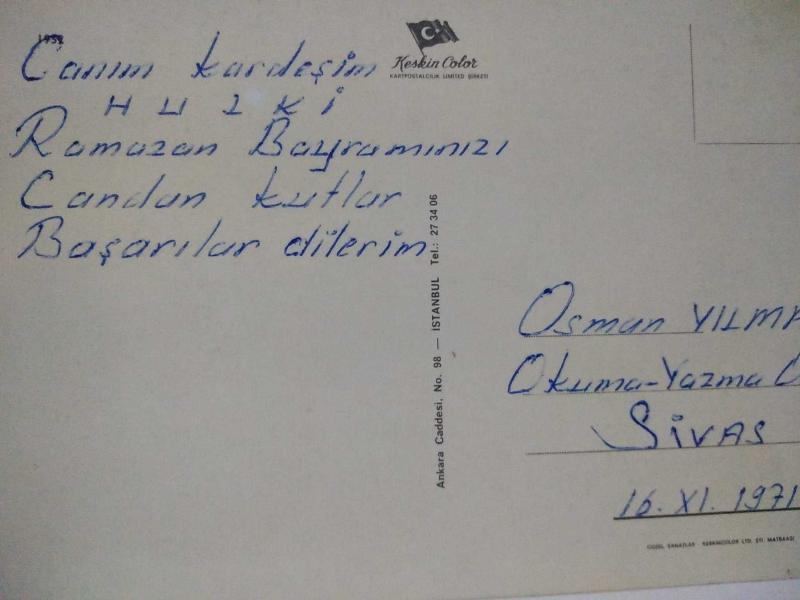 1952
Canım kardeşim
Ramazan Bayramınızı
Candan kutlar
Başarılar dilerim
Keskin Color
KARTPOSTALCILIK LİMİTED ŞİRKETİ
Ankara Caddesi, No. 98 — İSTANBUL Tel.: 27 34 06
Osman YILMA
Okuma-Yazma
SİVAS
16. XI. 1971
GÜZEL SANATLAR - KESKİNCOLOR LTD. ŞTİ. MATBAASI